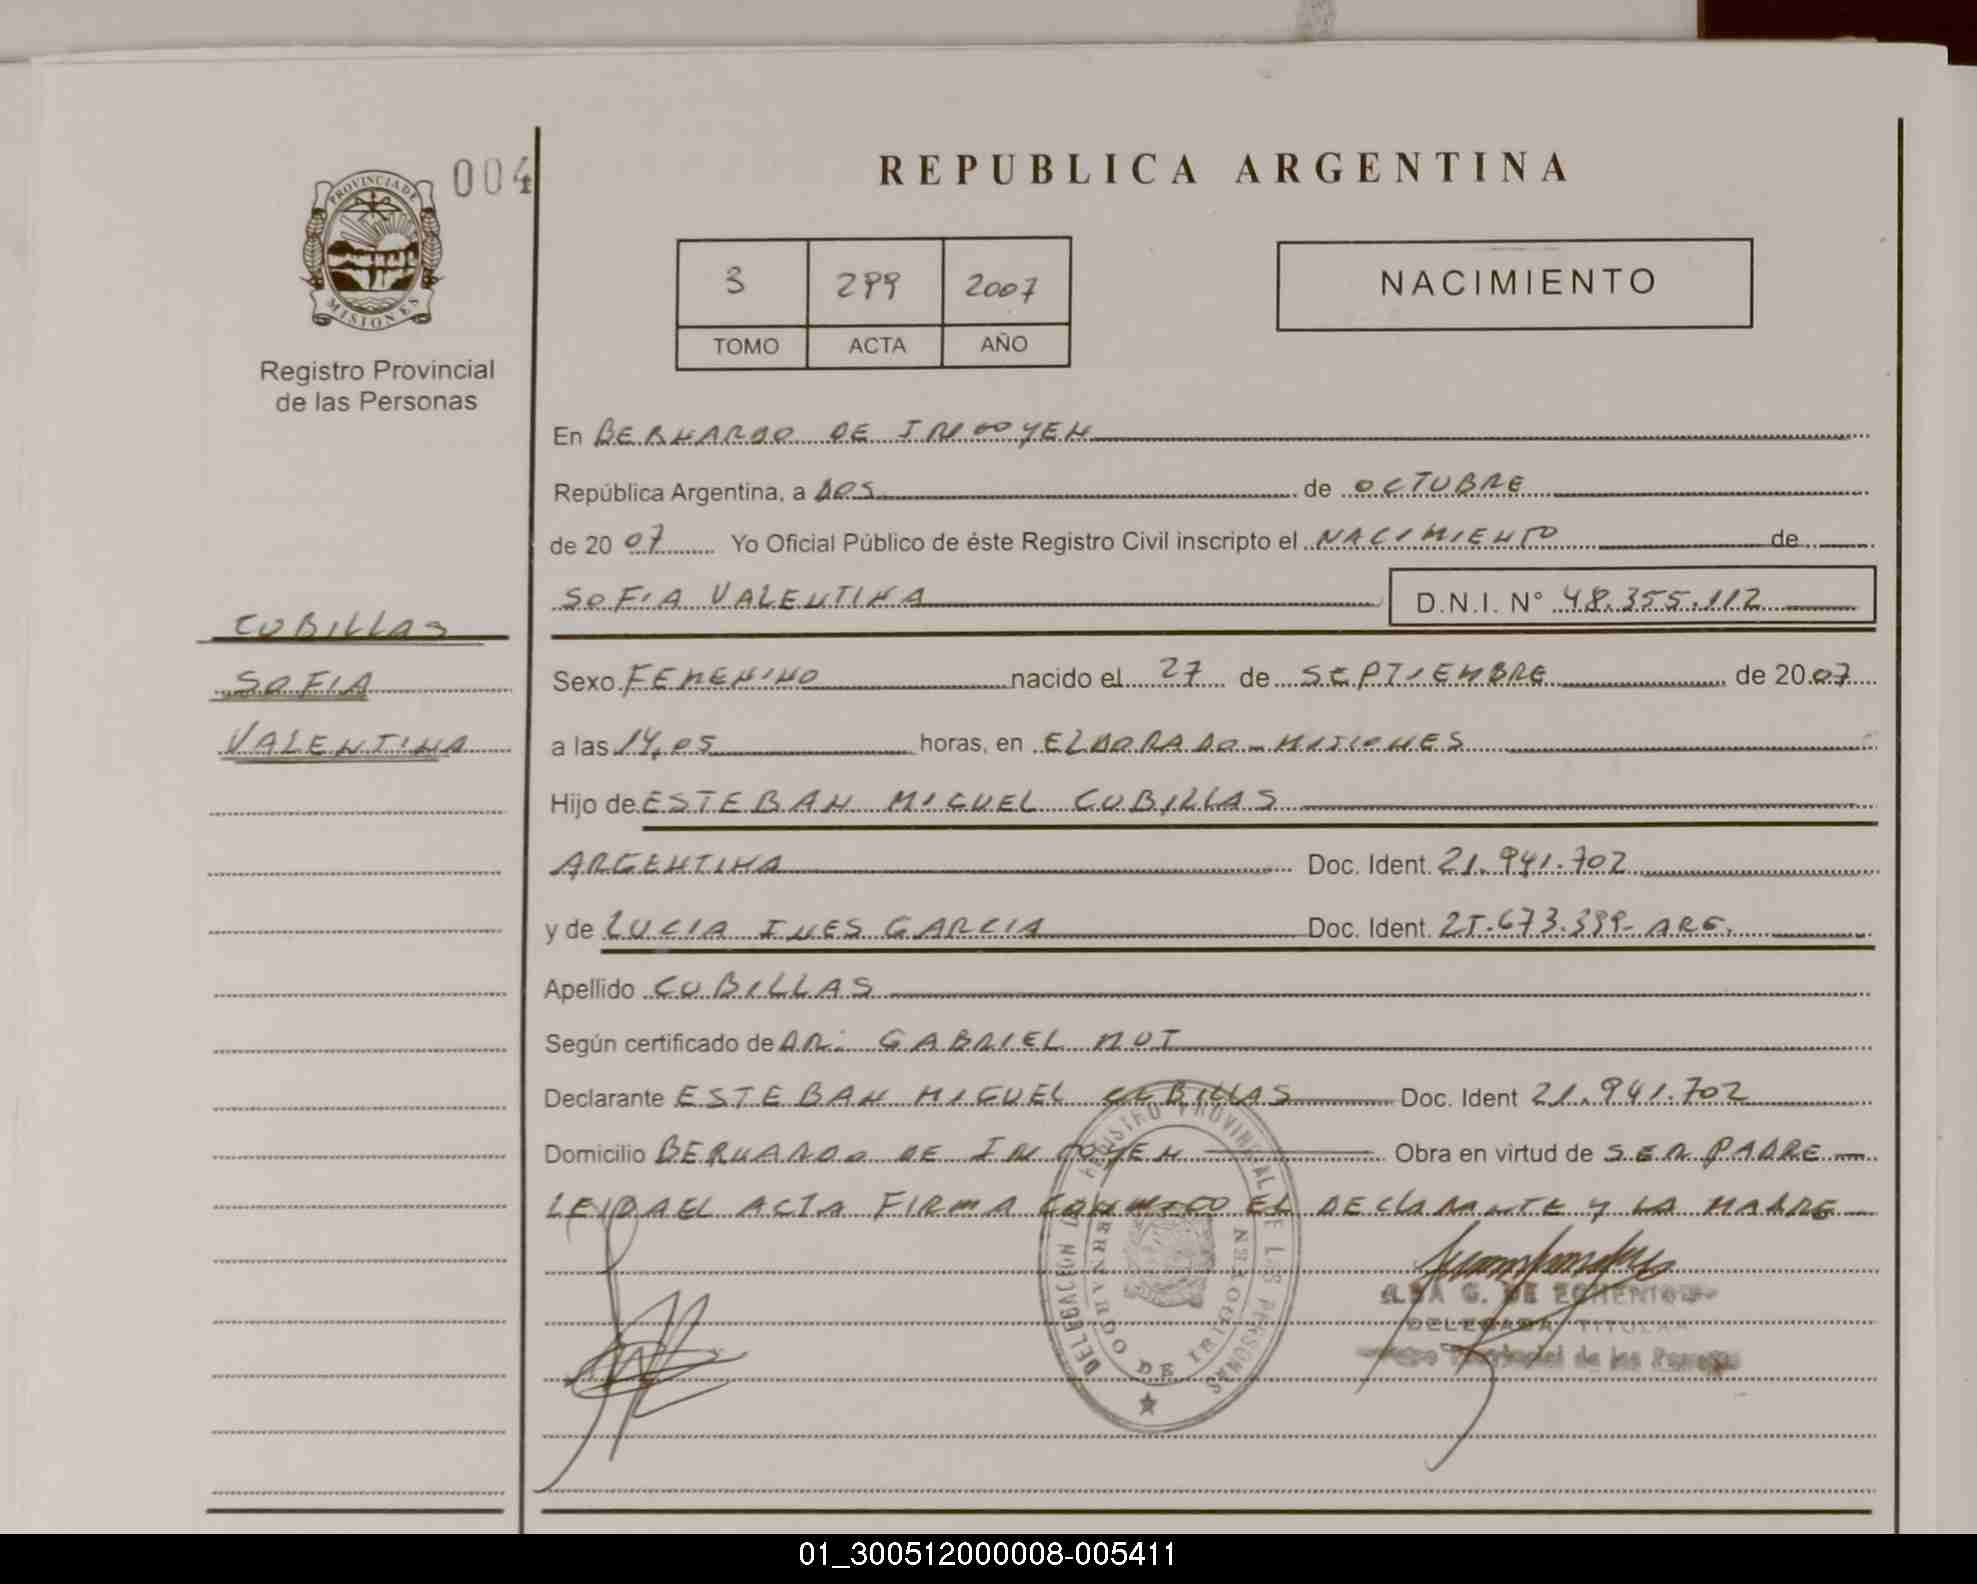 REPUBLICA ARGENTINA
004
PROVINCIA DE
MISIONES
Registro Provincial
de las Personas
3 299 2007
TOMO ACTA AÑO
NACIMIENTO
En BERNARDO DE IRIGOYEN
República Argentina, a DOS de OCTUBRE
de 20 07 Yo Oficial Público de éste Registro Civil inscripto el NACIMIENTO de
SOFIA VALENTINA D.N.I. N° 48.355.112
CUBILLAS
SOFIA
VALENTINA
Sexo FEMENINO nacido el 27 de SEPTIEMBRE de 20 07
a las 14,05 horas, en ELDORADO - MISIONES
Hijo de ESTEBAN MIGUEL CUBILLAS
ARGENTINA Doc. Ident. 21.941.702
y de LUCIA INES GARCIA Doc. Ident. 25.673.399- ARG.
Apellido CUBILLAS
Según certificado de DR. GABRIEL
Declarante ESTEBAN MIGUEL CUBILLAS Doc. Ident 21.941.702
Domicilio BERNARDO DE IRIGOYEN Obra en virtud de SER PADRE
LEIDA EL ACTA FIRMA CONMIGO EL DECLARANTE Y LA MADRE
REGISTRO PROVINCIAL DE LAS PERSONAS
DELEGACION
BERNARDO DE IRIGOYEN
G. DE
DELEGADA TITULAR
Provincial de las Personas
01_300512000008-005411